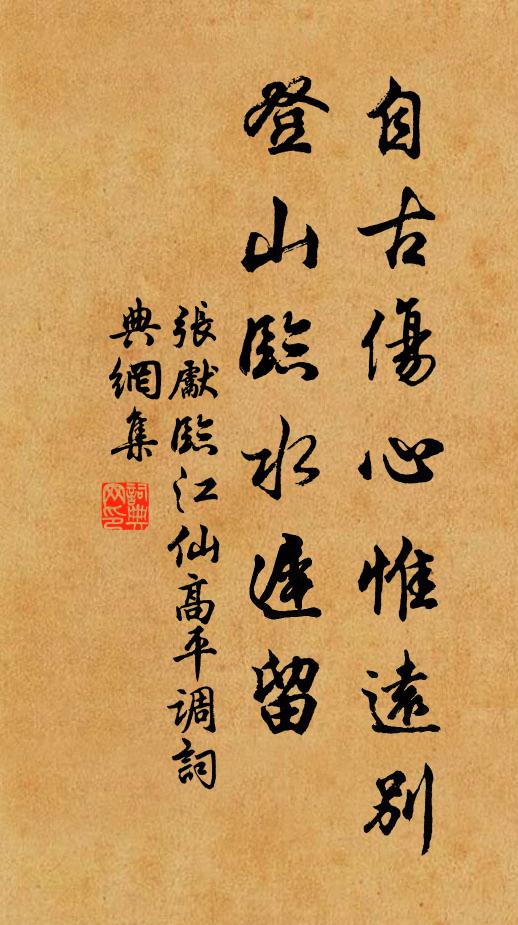 自古傷心惟遠別
登山臨水遲留
張獻臨江仙高平調詞
典網集
詞典網印